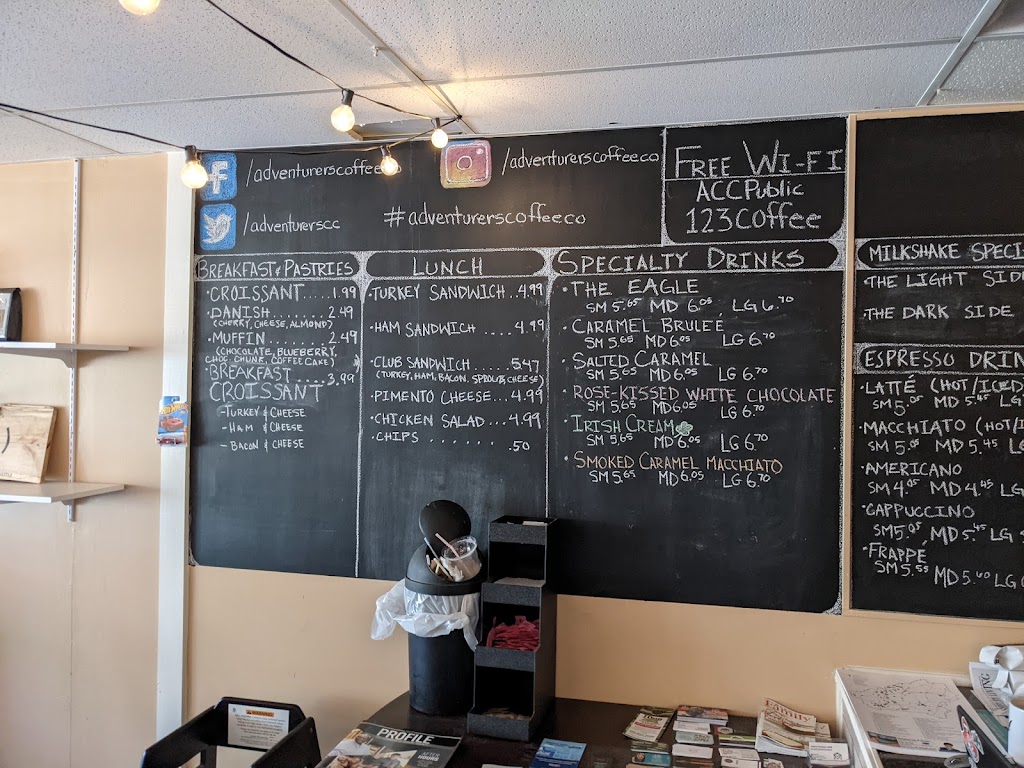 /adventurerscoffeeco
/adventurerscc
#adventurerscoffeeco
/adventurerscoffeeco
FREE WI-FI
ACCPublic
123coffee
BREAKFAST & PASTRIES
·CROISSANT....1.99
·DANISH.......2.49
(CHERRY, CHEESE, ALMOND)
·MUFFIN.......2.49
(CHOCOLATE, BLUEBERRY,
CHOC. CHUNK, COFFEE CAKE)
·BREAKFAST....3.99
CROISSANT
-TURKEY & CHEESE
-HAM & CHEESE
-BACON & CHEESE
LUNCH
·TURKEY SANDWICH..4.99
·HAM SANDWICH ....4.99
·CLUB SANDWICH....5.47
(TURKEY, HAM, BACON, SPROUTS, CHEESE)
·PIMENTO CHEESE...4.99
·CHICKEN SALAD...4.99
·CHIPS . . . . . . .50
SPECIALTY DRINKS
·THE EAGLE
SM 5.65 MD 6.05, LG 6.70
·CARAMEL BRULEÉ
SM 5.65 MD 6.05 LG 6.70
·SALTED CARAMEL
SM 5.65 MD 6.05 LG 6.70
·ROSE-KISSED WHITE CHOCOLATE
SM 5.65 MD 6.05 LG 6.70
·IRISH CREAM
SM 5.65 MD 6.05 LG 6.70
·SMOKED CARAMEL MACCHIATO
SM 5.65 MD 6.05 LG 6.70
MILKSHAKE SPECI
·THE LIGHT SIDE
·THE DARK SIDE
ESPRESSO DRIN
·LATTÉ (HOT/ICED
SM 5.05 MD 5.45 LG
·MACCHIATO (HOT/I
SM 5.05 MD 5.45 LG
·AMERICANO
SM 4.05 MD 4.45 LG
·CAPPUCCINO
SM 5.05, MD 5.45 LG
·FRAPPE
SM 5.55 MD 5.60 LG
WARNING
PROFILE
AFTER HOURS
Family